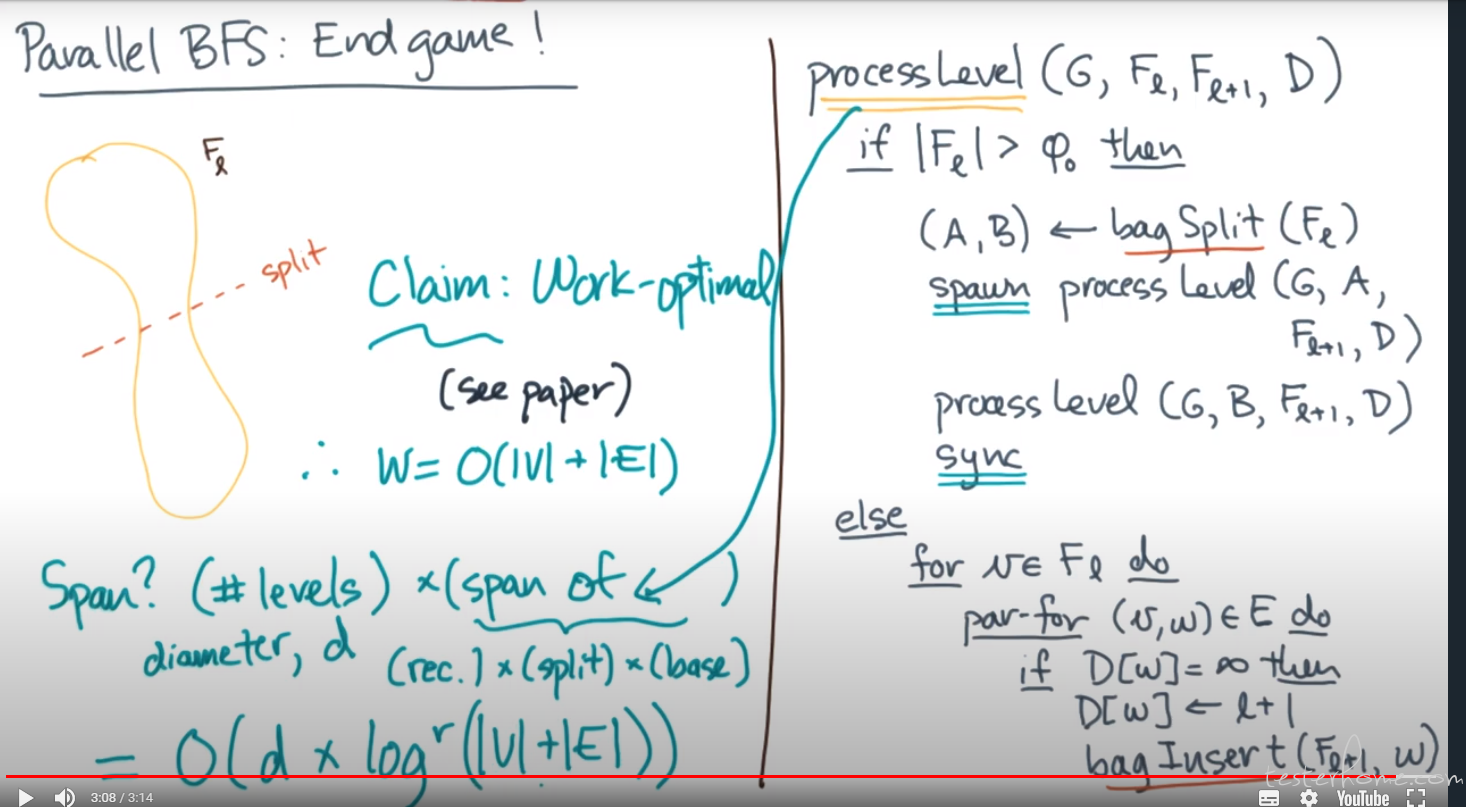 Parallel BFS: End game!
F_ℓ
split
Claim: Work-optimal
(see paper)
∴ W = O(|V| + |E|)
Span? (# levels) × (span of ← )
diameter, d
(rec.) × (split) × (base)
= O(d × log^r(|V| + |E|))
processLevel (G, F_ℓ, F_ℓ+1, D)
if |F_ℓ| > φ₀ then
(A, B) ← bagSplit (F_ℓ)
spawn process Level (G, A,
F_ℓ+1, D)
process Level (G, B, F_ℓ+1, D)
sync
else
for v ∈ F_ℓ do
par-for (v, w) ∈ E do
if D[w] = ∞ then
D[w] ← ℓ+1
bagInsert (F_ℓ+1, w)
testerhome.com
3:08 / 3:14
YouTube